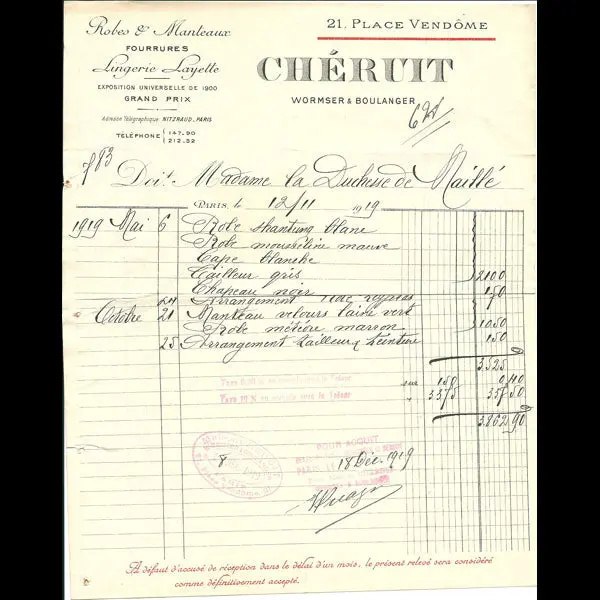 Robes & Manteaux
FOURRURES
Lingerie Layette
EXPOSITION UNIVERSELLE DE 1900
GRAND PRIX
Adresse Télégraphique: NITZRAUD. PARIS
TÉLÉPHONE { 147.90
212.32
21, PLACE VENDÔME
CHÉRUIT
WORMSER & BOULANGER
Doit Madame la Duchesse de Maillé
PARIS, le 12/11 1919
1919 Mai 6 Robe shantung blanc
Robe mousseline mauve
Cape blanche
Tailleur gris 2100
Chapeau noir 150
24 Arrangement
Octobre 21 Manteau velours laine vert
Robe marron 1050
25 Arrangement tailleur teinture 150
3.525
Taxe 10 % sur 150 0,40
" 3375 357 50
3.862 90
8
POUR ACQUIT
PARIS
18 Déc. 1919
A défaut d'accusé de réception dans le délai d'un mois, le présent relevé sera considéré
comme définitivement accepté.